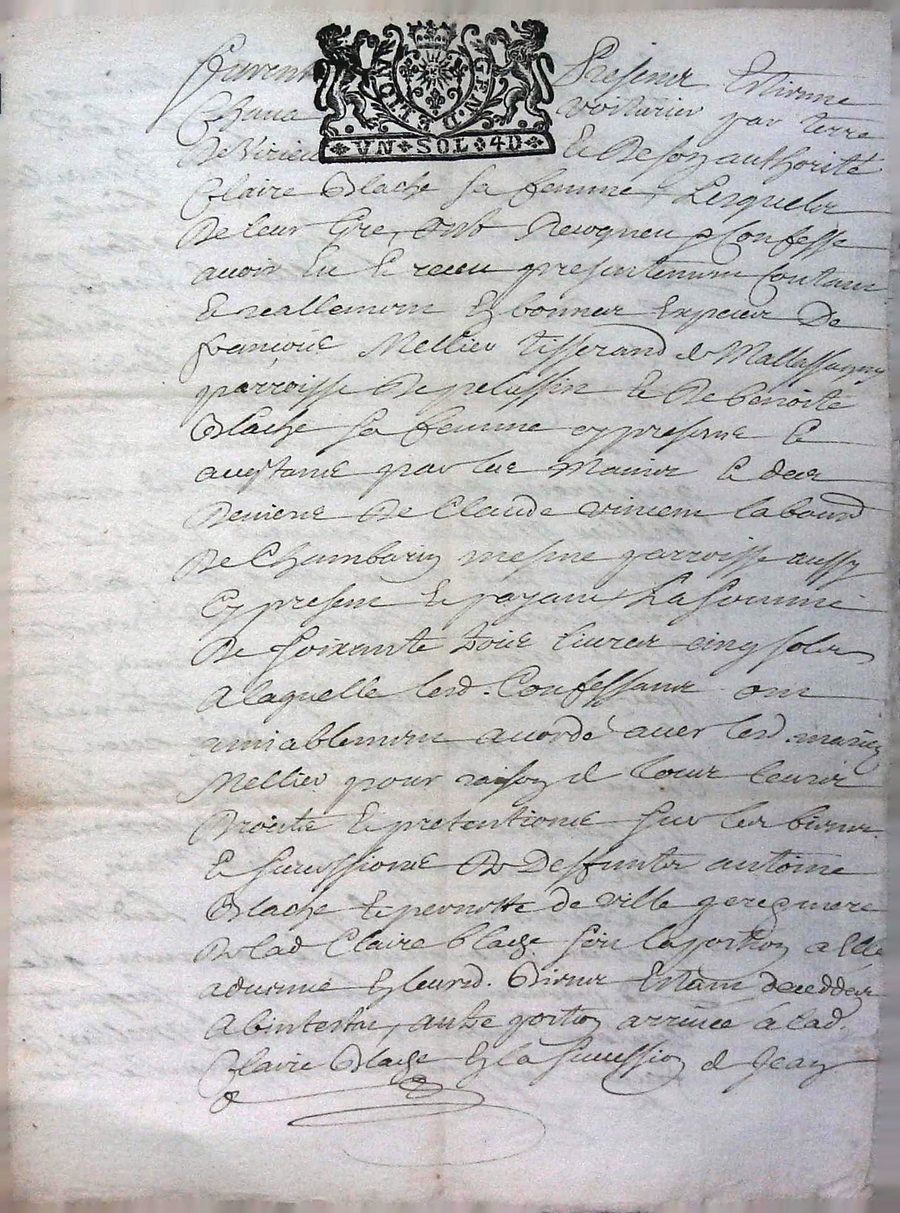 Furent Presents Estienne
Chana voiturier par terre
De Virieu Et De son authorité
Claire Blache sa femme, Lesquels
De leur Gre, ont Recogneu & Confesse
avoir Eu & receu presentement Contant
Et reallement Et bonnes Especes De
françois Mellier tisserand de Mallassagny
parroisse De pelussin Et De benoiste
Blache sa femme cy presents Et
aceptants par les Mains & des
Deniers De Claude vincent labourd
De Chambarin mesme parroisse aussy
Cy present Et payant La somme
De soixante trois livres cinq sols
A laquelle lesd. Confessants ont
amiablement acordé avec lesd. mariez
Mellier pour raison de tous leurs
Droits Et pretentions Sur les biens
Et sucessions De Deffunts antoine
Blache Et pernotte de ville pere & mere
De lad Claire blache soit la portion a elle
advenue Esleurd. Biens Estant deceddez
Abintestat, autre portion arrivée à lad.
Claire Blache En la sucession de Jean
UN · SOL · 4D
GEN. DE LION